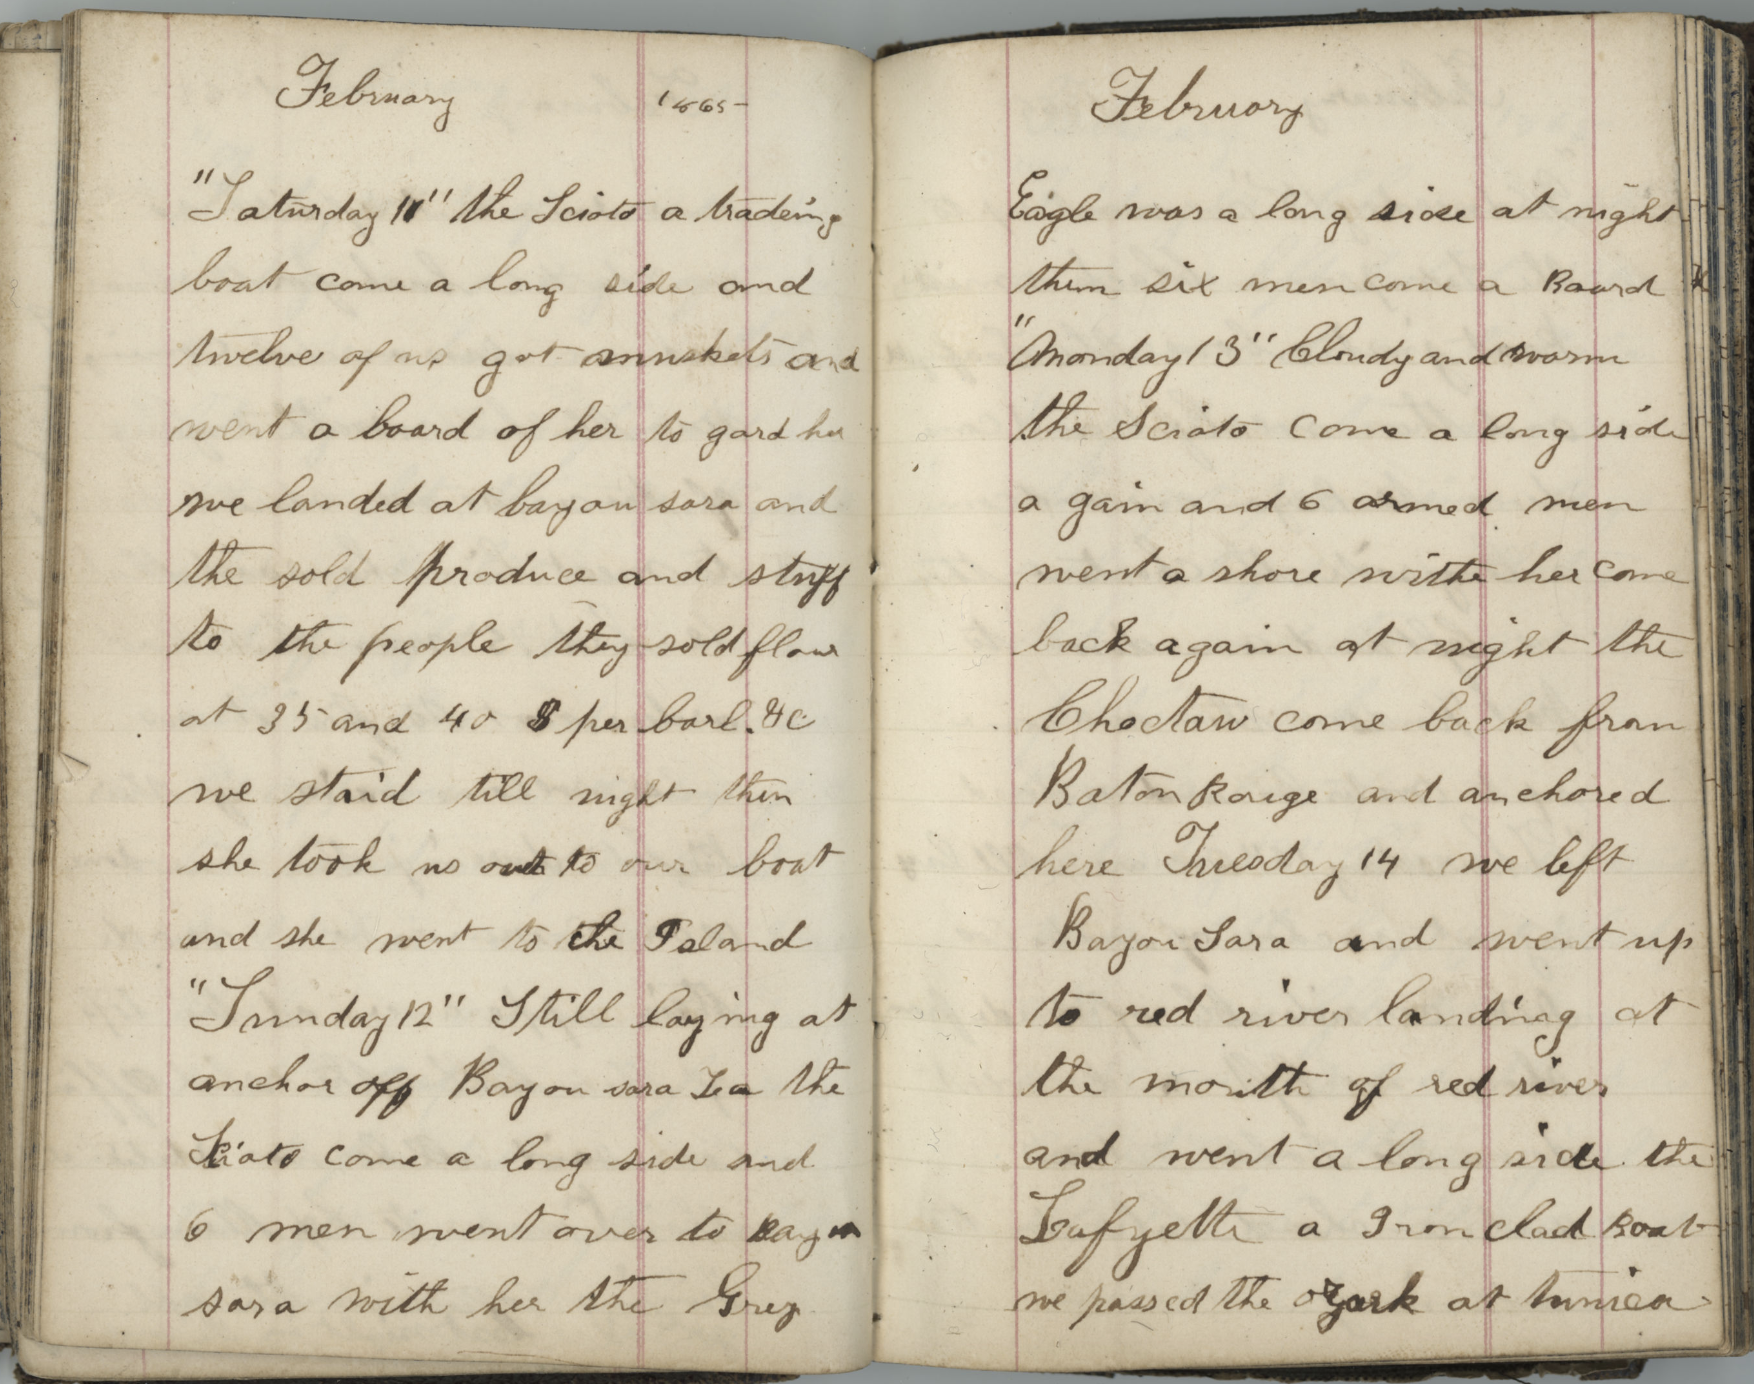 February 1865
"Saturday 11" the Scioto a tradeing
boat come a long side and
twelve of us got muskets and
went a board of her to gard her
we landed at bayou sara and
the sold produce and stuff
to the people they sold flour
at 35 and 40 $ per barl. &c
we staid till night then
she took us out to our boat
and she went to the Island
"Sunday 12" Still laying at
anchor off Bayou sara La the
Scioto come a long side and
6 men went over to bayou
sara with her the Grey
February
Eagle was a long side at night
then six men come a Board
"Monday 13" Cloudy and warm
the Scioto come a long side
a gain and 6 armed men
went a shore withe her come
back again at night the
Choctaw come back from
Baton Rouge and anchored
here Tuesday 14 we left
Bayou Sara and went up
to red river landing at
the mouth of red river
and went a long side the
Lafyette a Iron clad Boat
we passed the ozark at tunica